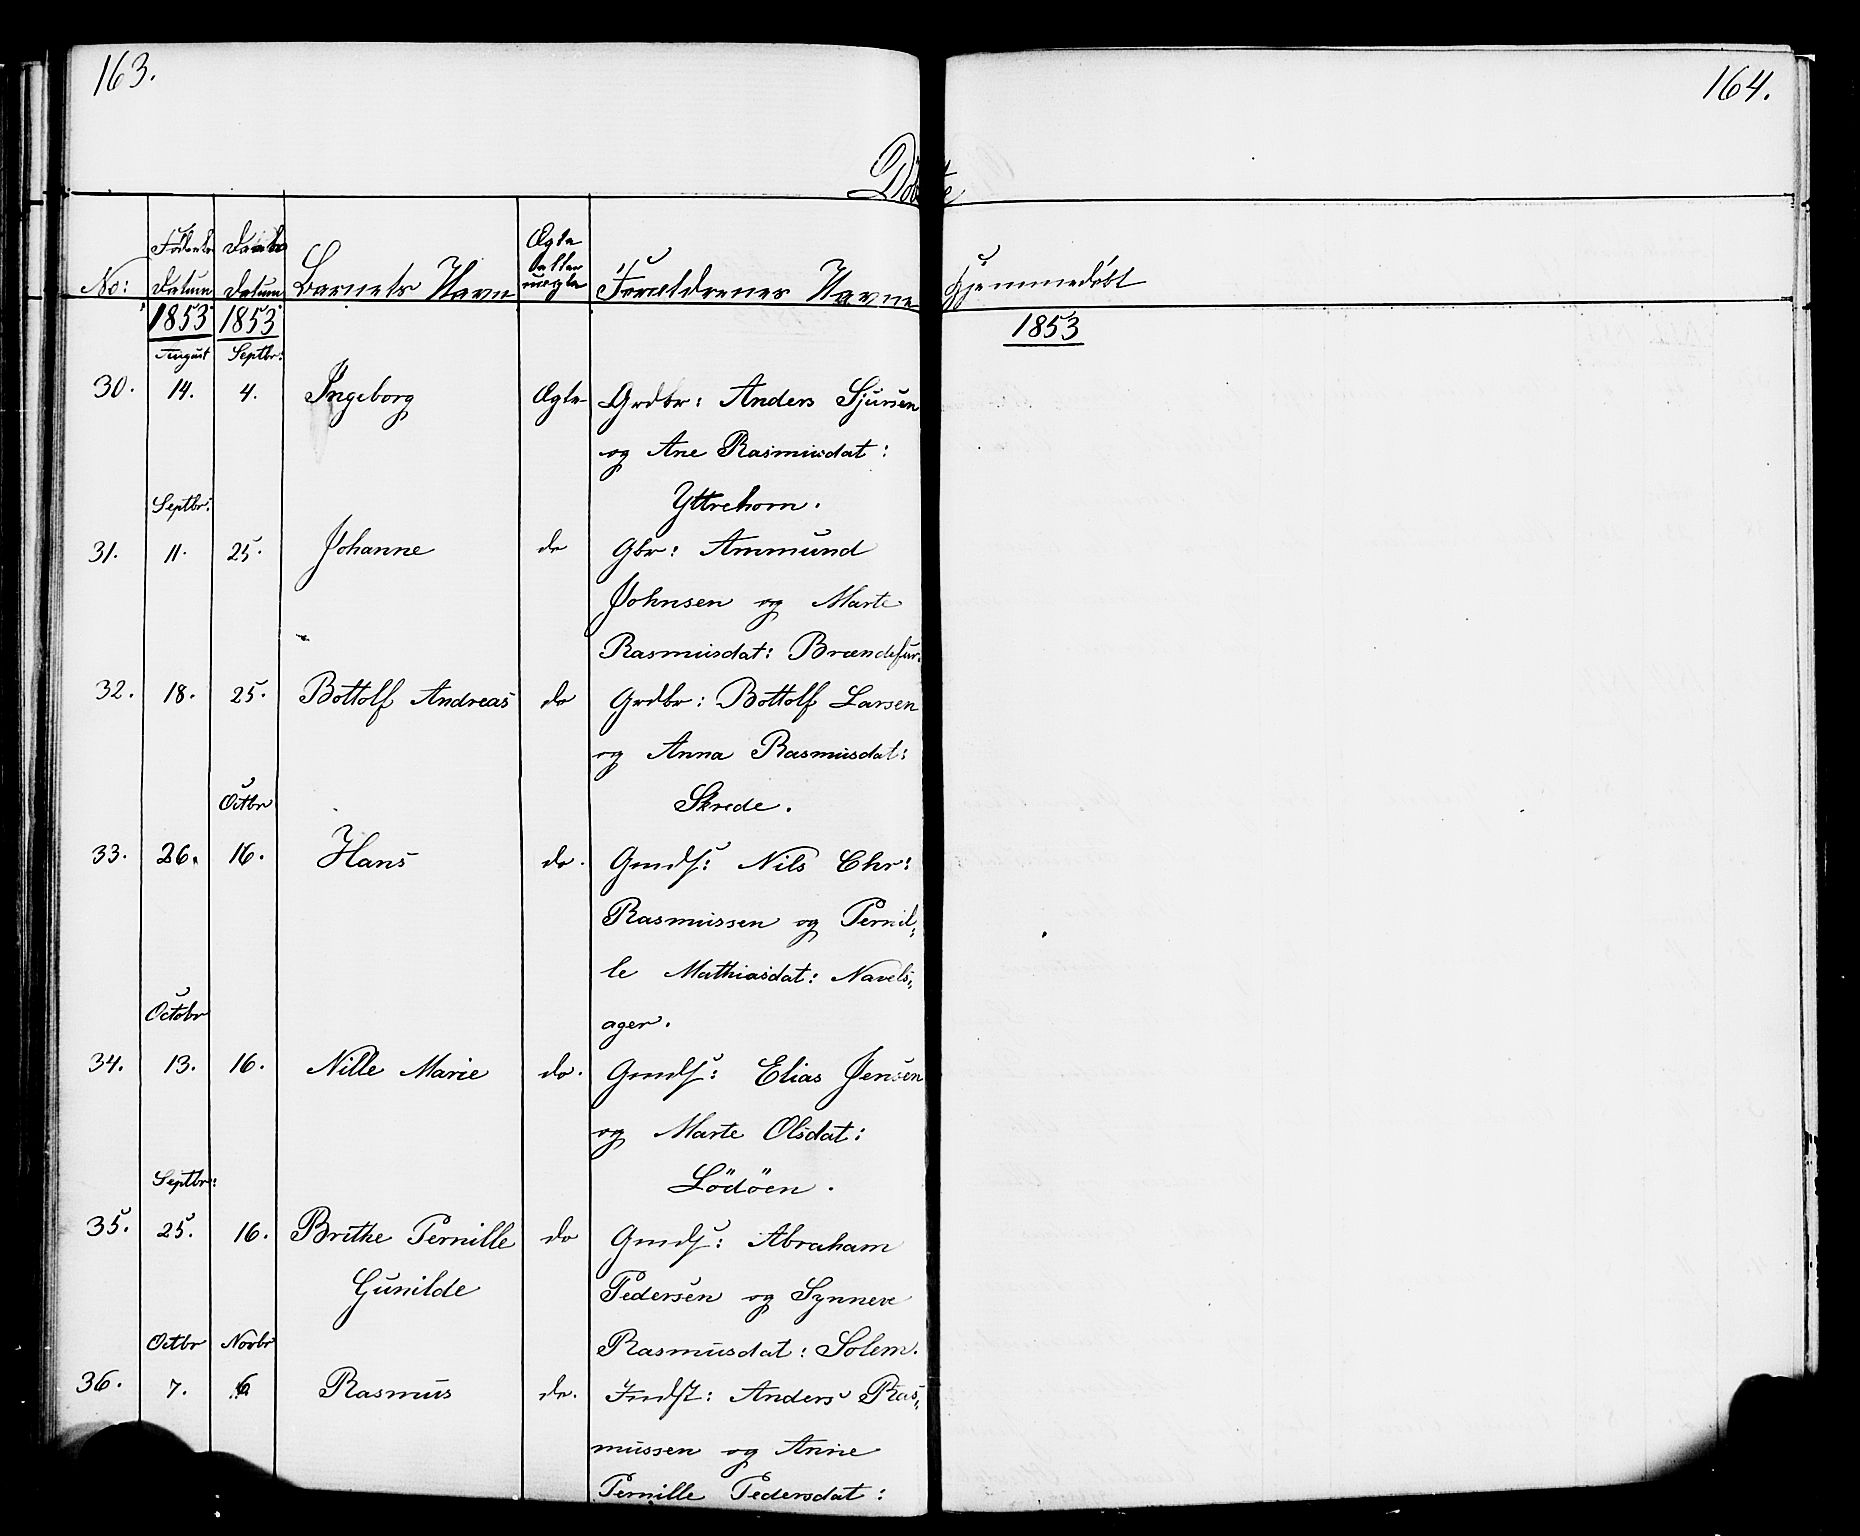 163.
164.
Døbte
No: Fødsels Datum Daabs Datum Barnets Navn Ægte eller uægte Forældrenes Navne Hjemmedøbt
1853 1853 1853
August Septbr:
30. 14. 4. Ingeborg Ægte Grdbr: Anders Sjursen
og Ane Rasmusdat:
Yttrehorn.
Septbr:
31. 11. 25. Johanne do Gbr: Ammund
Johnsen og Marte
Rasmusdat: Brændefur.
32. 18. 25. Bottolf Andreas do Grdbr: Bottolf Larsen
og Anna Rasmusdat:
Skrede.
Octbr
33. 26. 16. Hans do. Gmds: Nils Chr:
Rasmussen og Pernil-
le Mathiasdat: Navels-
ager.
Octobr
34. 13. 16. Nille Marie do. Gmds: Elias Jensen
og Marte Olsdat:
Lödöen.
Septbr:
35. 25. 16. Brithe Pernille do Gmds: Abraham
Gunilde Pedersen og Synneve
Rasmusdat: Solem.
Octbr Novbr
36. 7. 6 Rasmus do. Indst: Anders Ras-
mussen og Anne
Pernille Pedersdat: